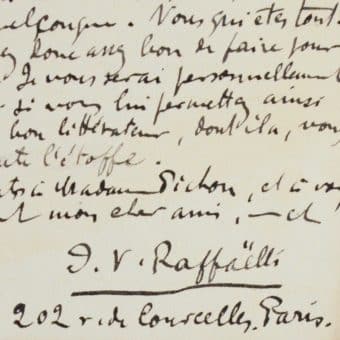 uelconque. Vous qui êtes tout-
ez donc assez bon de faire pour
Je vous serai personnellement
si vous lui permettez ainsi
bon littérateur, dont il a, vous
l'étoffe.
à Madame Pichon, et à vo
mon cher ami, — et
J. V. Raffaëlli
202 r. de Courcelles. Paris.